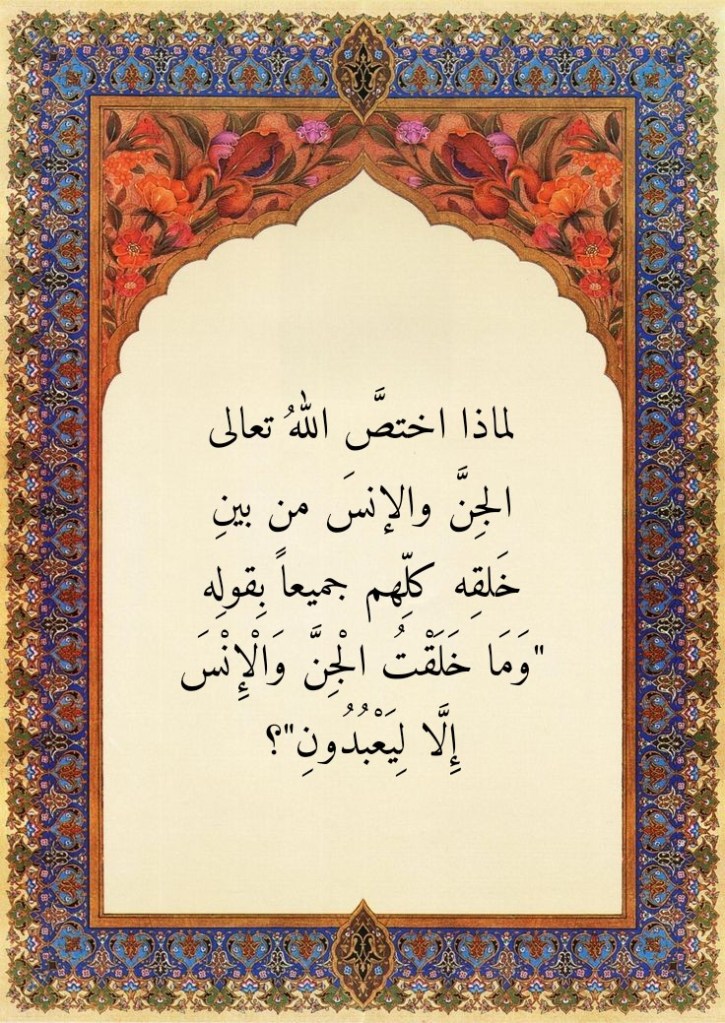 لماذا اختصَّ اللهُ تعالى
الجِنَّ والإنسَ من بينِ
خَلقِه كلِّهم جميعاً بِقولِه
"وَمَا خَلَقْتُ الْجِنَّ وَالْإِنْسَ
إِلَّا لِيَعْبُدُونِ"؟